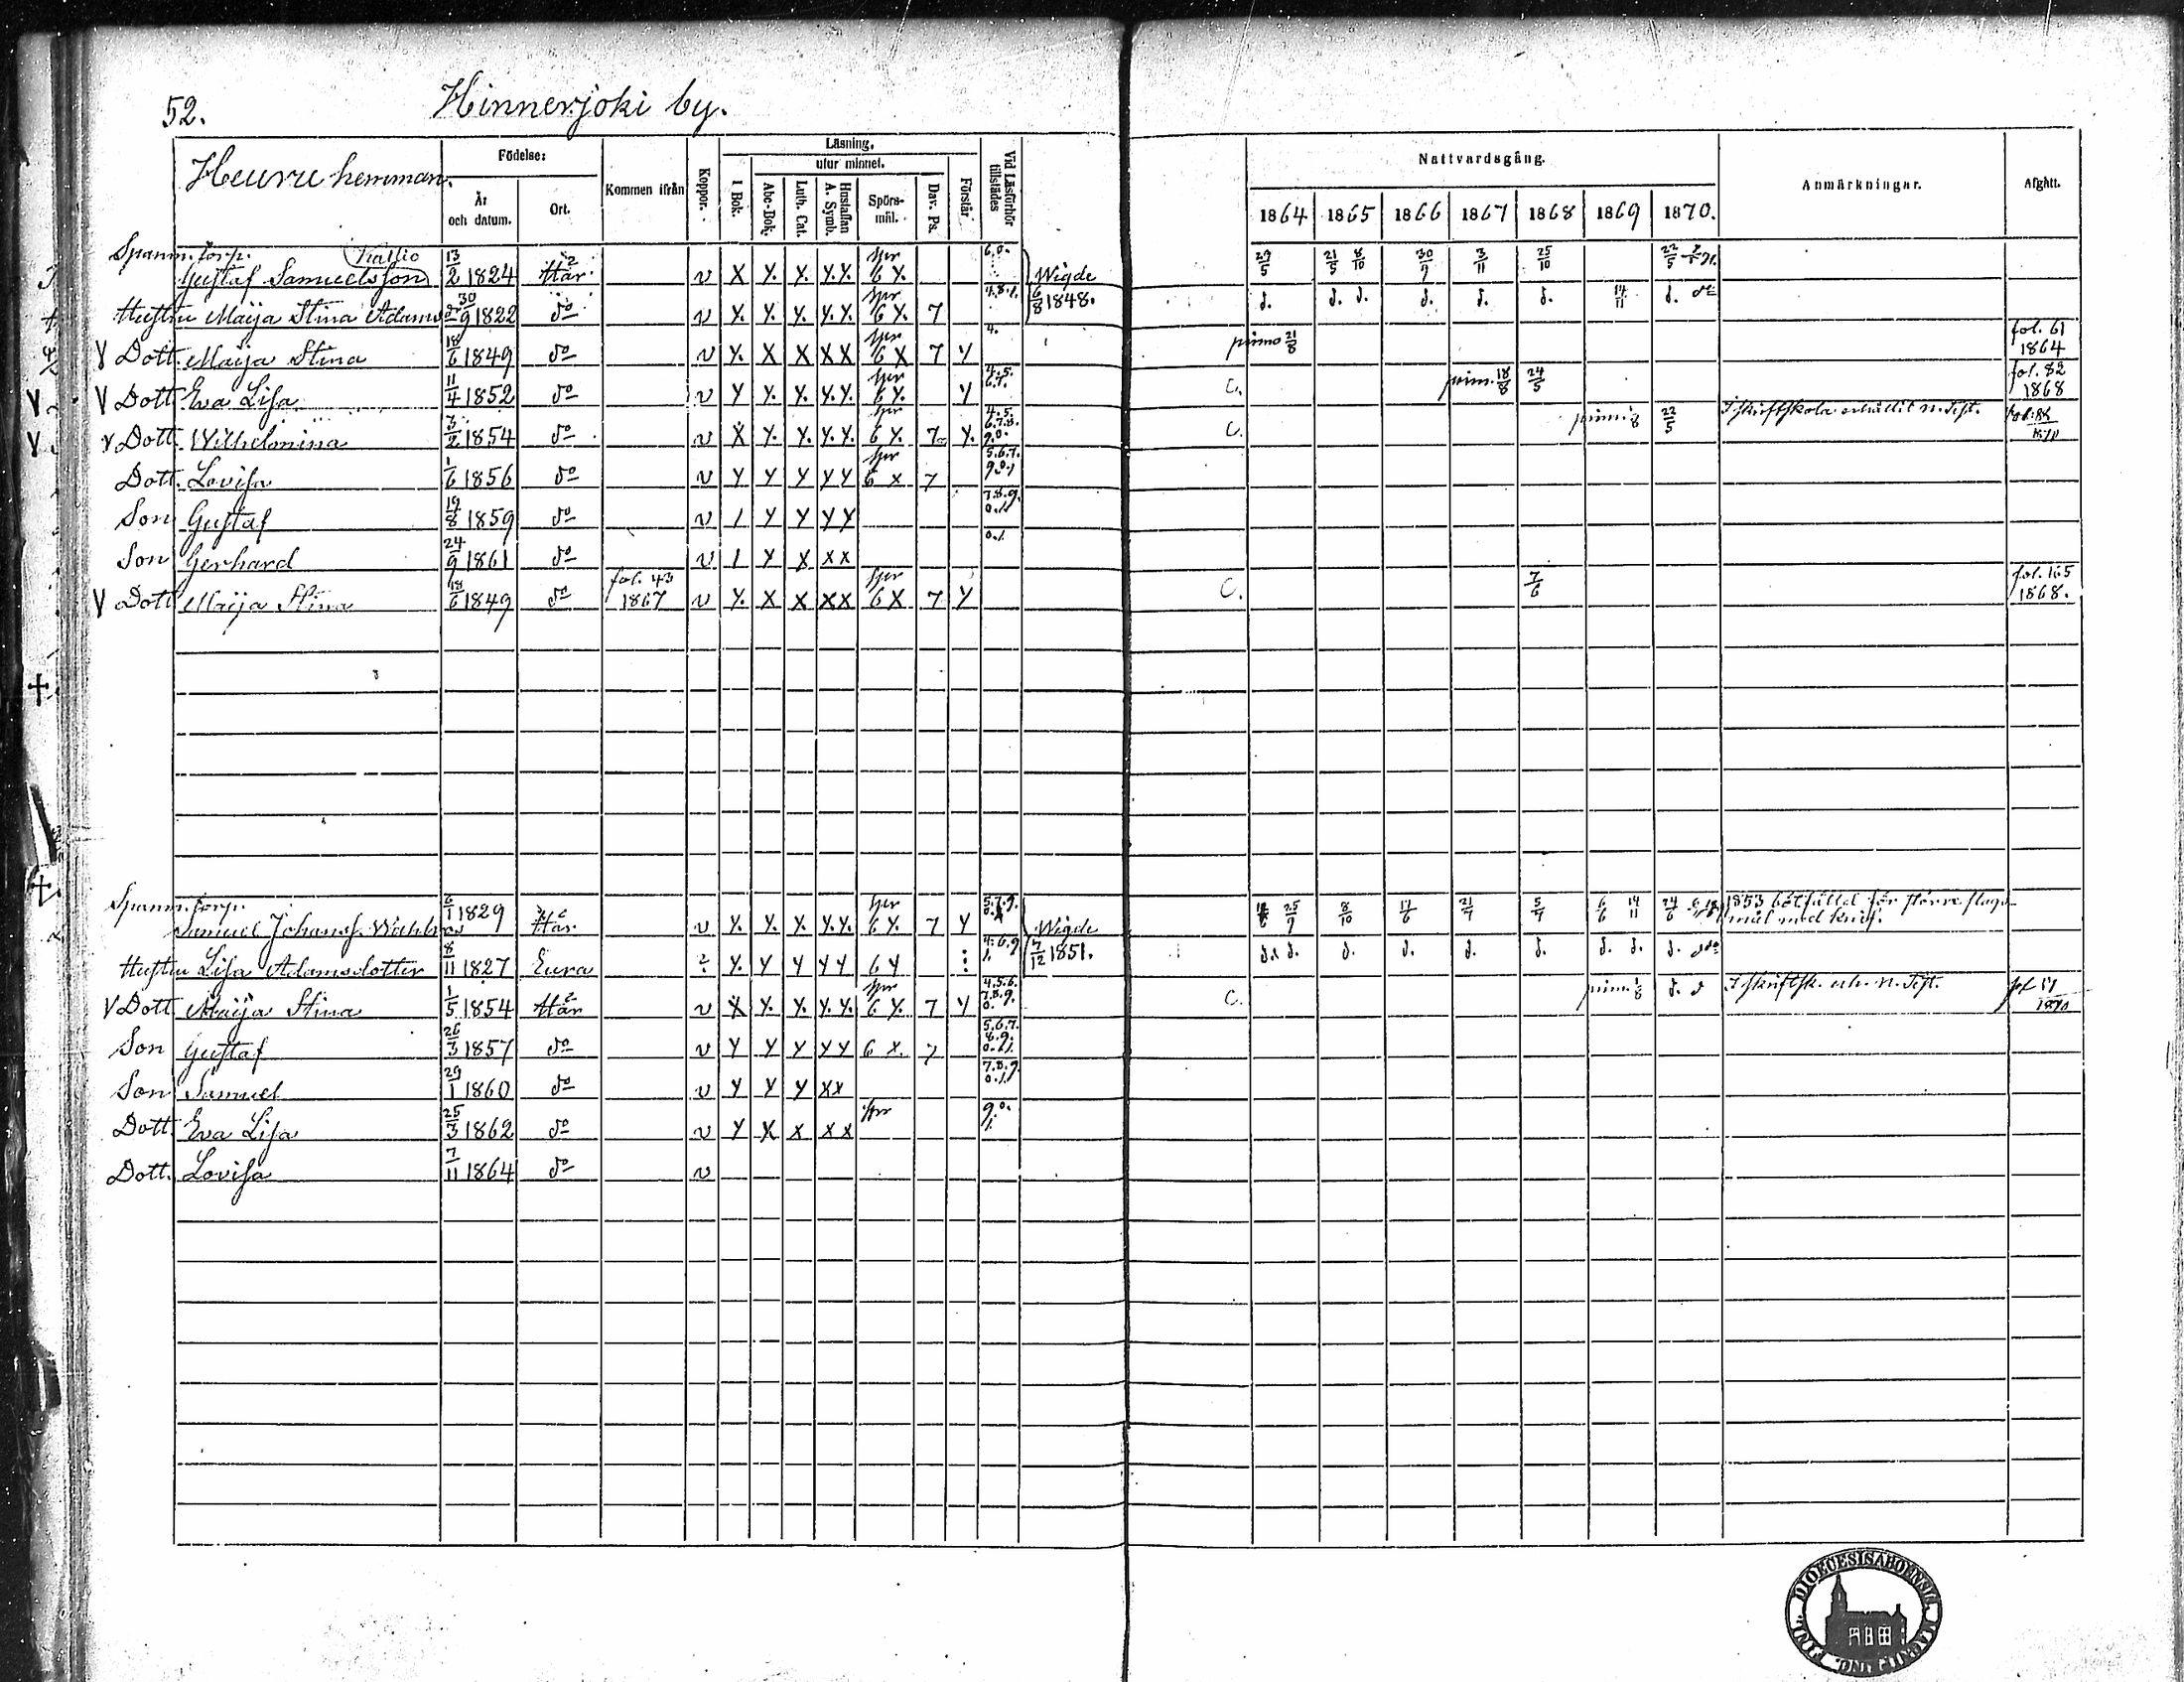 52. Hinnerjoki by.
Heuru hemman.
Födelse:
År och datum.
Ort.
Kommen ifrån
Koppor.
Läsning.
I Bok.
utur minnet.
Abc-Bok.
Luth. Cat.
Hustaflan A. Symb.
Spörs-mål.
Dav. Ps.
Förstår
Vid Läsförhör tillstädes
Nattvardsgång.
1864 1865 1866 1867 1868 1869 1870.
Anmärkningar.
Afgått.
Spanm. torp. Kallio
Gustaf Samuelsson 13/2 1824 Här v X Y. Y. Y.Y. 6 Y. 6.0. Wigde 29/5 21/5 8/10 30/9 3/11 25/10 22/5
Hustru Maija Stina Adamsdr 30/9 1822 do v Y. Y. Y. Y.Y. 6 Y. 7 6/8 1848. d. d. d. d. d. d. 14/11 d. do
V Dott. Maija Stina 18/6 1849 do v Y. X X X X 6 X 7 Y 4. primo 21/8 fol. 61 1864
V Dott. Eva Lisa 11/4 1852 do v Y Y. Y. Y.Y. 6 Y. Y 4.5. 6.7. C. prim. 18/8 24/5 fol. 82 1868
V Dott. Wilhelmina 3/2 1854 do v X Y. Y. Y.Y. 6 Y. 7 Y. 4.5. 6.7.8. 9.0. C. prim. 1/8 22/5 I skriftskola erhållit n. Test. 1870
Dott. Lovisa 1/6 1856 do v Y Y Y Y Y 6 x 7 5.6.7. 9.0.1
Son Gustaf 19/8 1859 do v 1 Y Y Y Y 7.8.9. 0.1.
Son Gerhard 24/9 1861 do v 1 Y X x x 0.1.
V Dott Maija Stina 18/6 1849 do fol. 43 1867 v Y. X X X X 6 X 7 Y C. 7/6 fol. 165 1868.
Spanm. torp.
Samuel Johanss. Wahlr 6/1 1829 Här v Y. Y. Y. Y.Y. 6 Y. 7 Y 5.7.9. Wigde 25/9 8/10 17/6 21/7 5/7 6/6 14/11 24/6 1853 bötfälld för större slagsmål med knif.
Hustru Lisa Adamsdotter 8/11 1827 Eura 2 Y. Y Y Y Y 6 Y 4.6.9 7/12 1851. d. d. d. d. d. d. d. d. d. do
V Dott Maija Stina 1/5 1854 Här v X Y. Y. Y.Y. 6 Y. 7 Y 4.5.6. 7.8.9. 0. C. prim. 1/8 d. d I skriftsk. erh. n. Test. 1870
Son Gustaf 26/3 1857 do v Y Y Y Y Y 6 x. 7 5.6.7. 8.9. 0.1.
Son Samuel 29/1 1860 do v Y Y Y x x 7.8.9. 0.1.
Dott. Eva Lisa 25/3 1862 do v Y X x x x 9.0. 1.
Dott. Lovisa 7/11 1864 do v